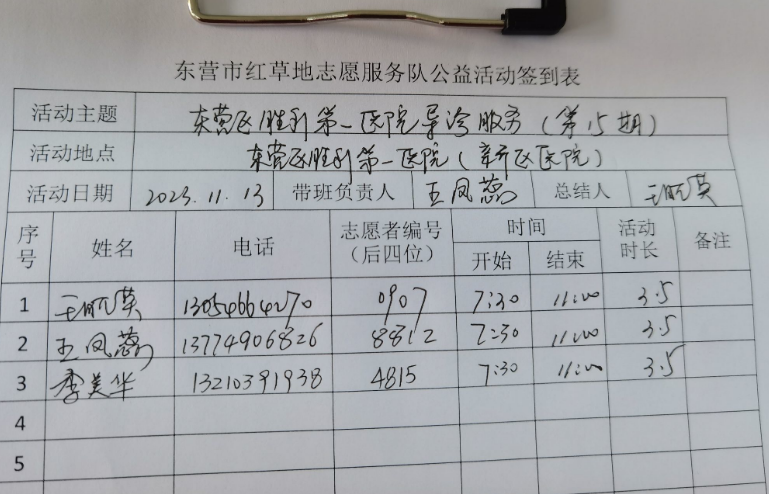 东营市红草地志愿服务队公益活动签到表
活动主题 东营区胜利第一医院导诊服务(第15期)
活动地点 东营区胜利第一医院(新区医院)
活动日期 2023.11.13 带班负责人 王凤蕊 总结人 王
序号 姓名 电话 志愿者编号(后四位) 时间 开始 结束 活动时长 备注
1 王 英 13054664270 0907 7:30 11:00 3.5
2 王凤蕊 13774906826 8812 7:30 11:00 3.5
3 季美华 13210391938 4815 7:30 11:00 3.5
4
5